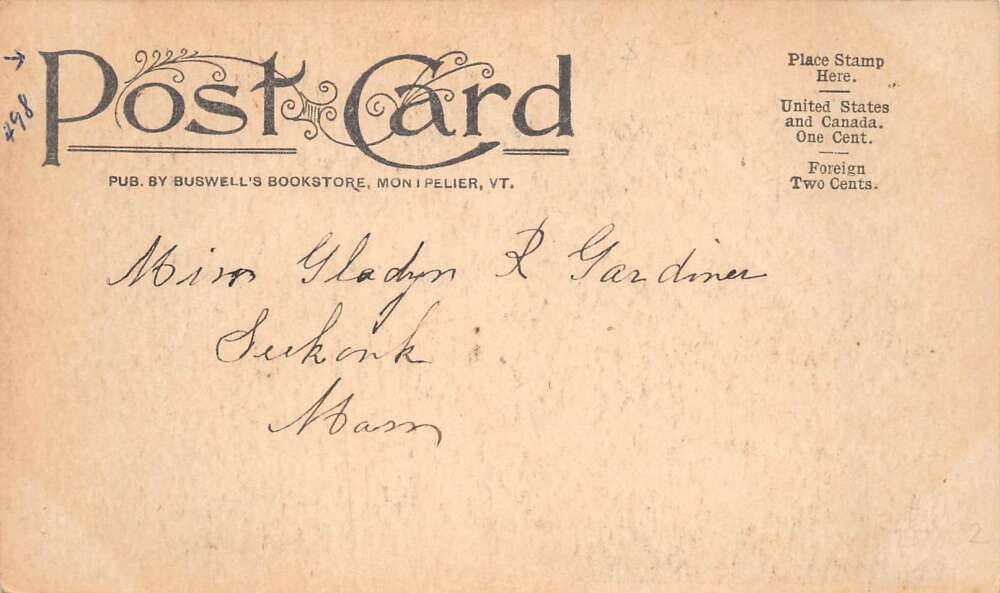 Post Card
PUB. BY BUSWELL'S BOOKSTORE, MONTPELIER, VT.
Place Stamp
Here.
United States
and Canada.
One Cent.
Foreign
Two Cents.
→
#98
Miss Gladys R Gardiner
Seekonk
Mass
2